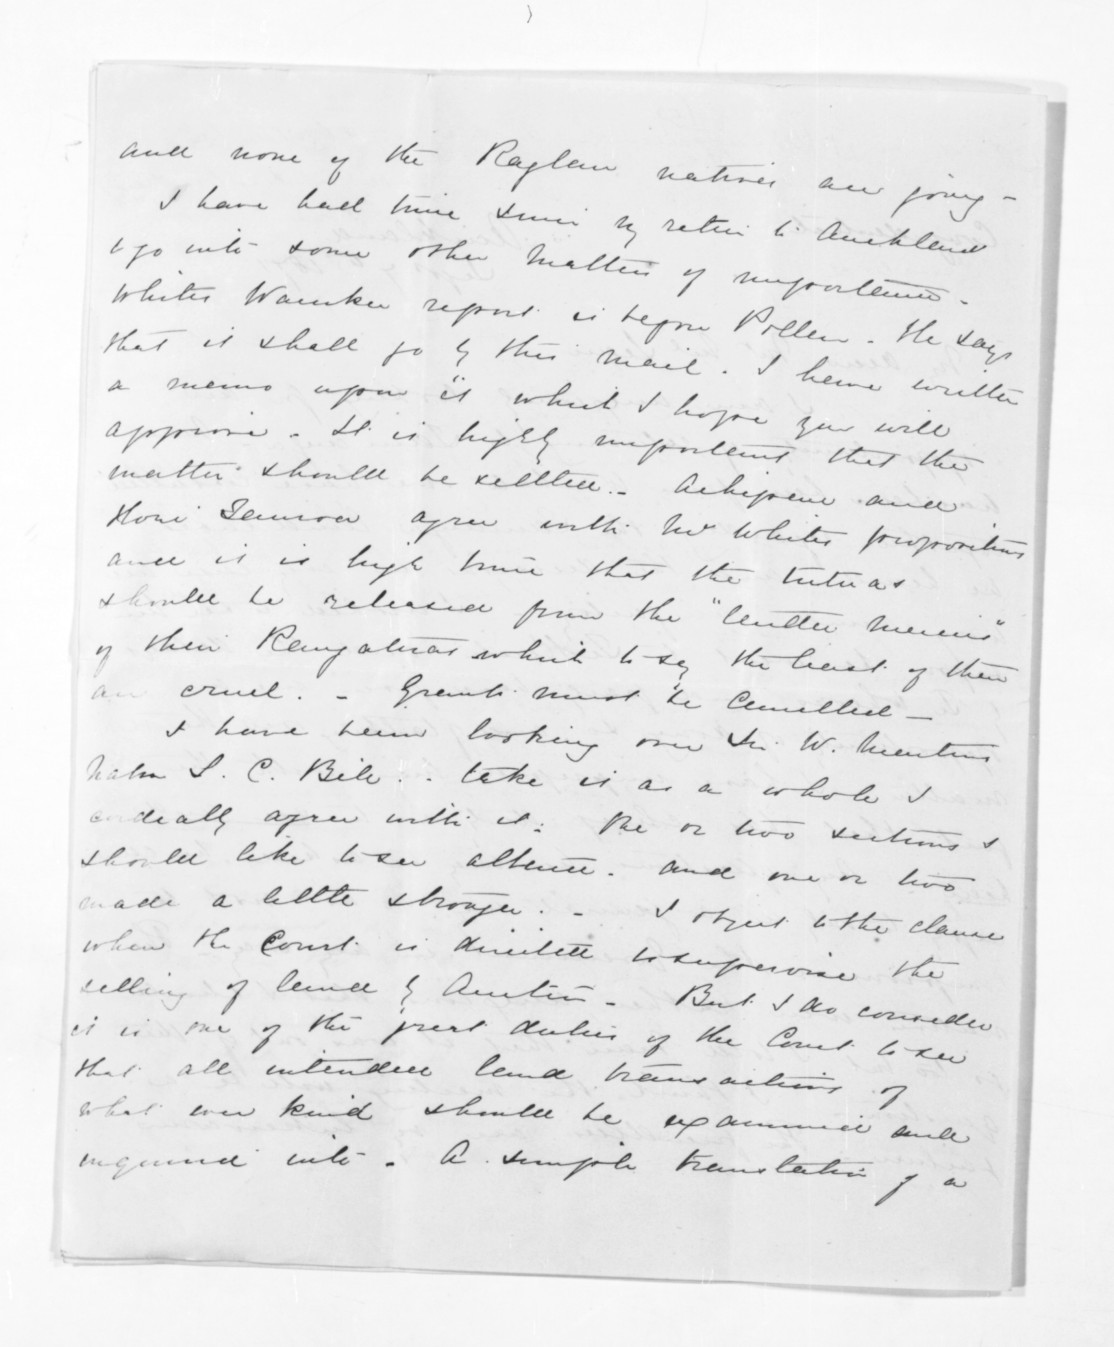 and none of the Raglan natives are going -
I have had time since my return to Auckland
to go into some other matters of importance -
Whites report is before Pollen - He says
that it shall go by this mail. I have written
a memo upon it which I hope you will
approve - It is highly important that the
matter should be settled - and
Hori Tauroa agree with Mr Whites propositions
and it is high time that the tutuas
should be released from the "tender mercies"
of their Rangatiras which to say the least of them
are cruel. - Grants must be cancelled -
I have been looking over Sir W. Martins
Native L. C. Bill - take it as a whole I
cordially agree with it: One or two sections I
should like to see altered. and one or two
made a little stronger. - I object to the clause
when the Court is directed to supervise the
selling of land by Auction - But I do consider
it is one of the great duties of the Court to see
that all intended land transactions of
what ever kind should be examined and
inquired into - A simple translation of a